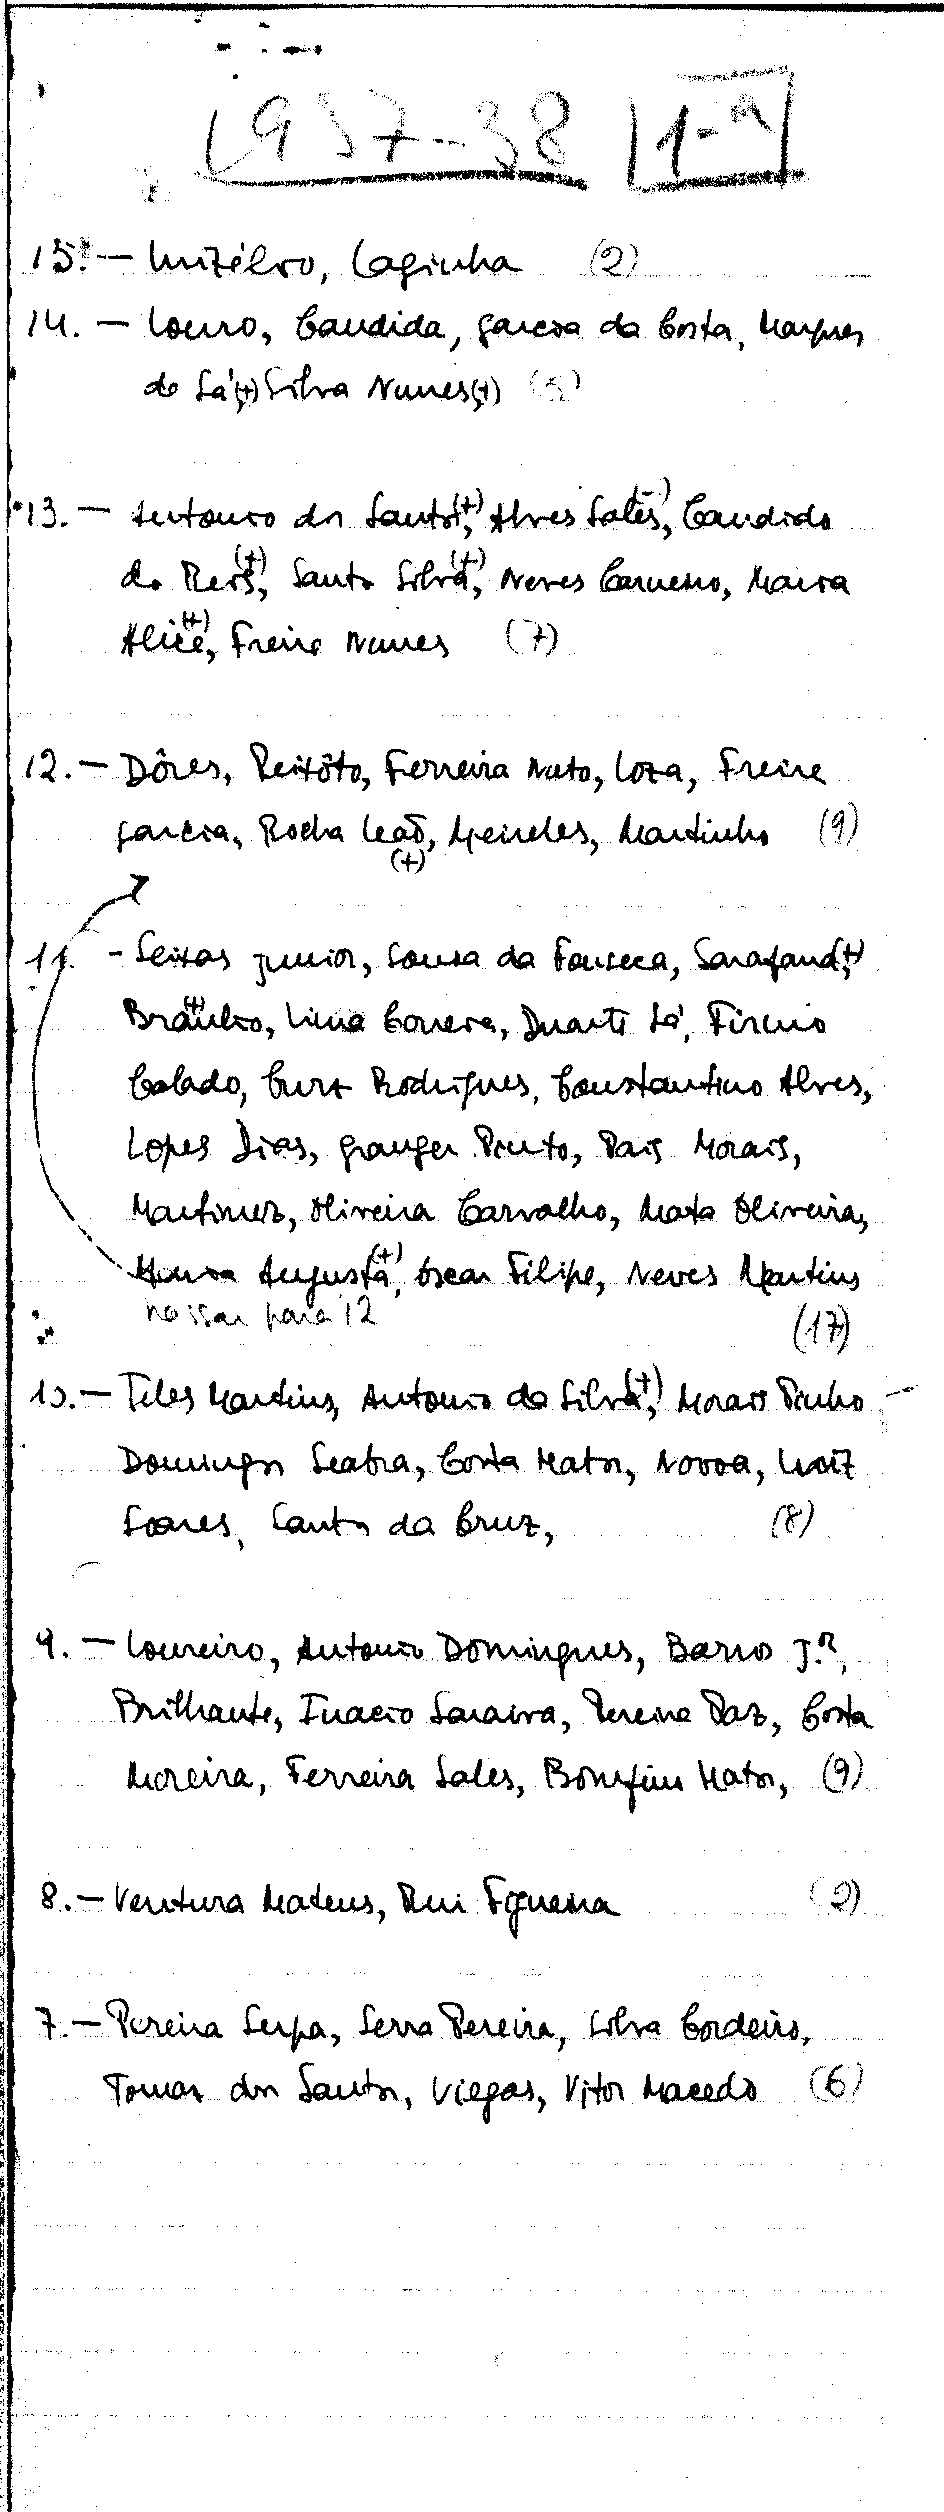 1937-38 1-a
15. - Caginha (2)
14. - Louro, Candida, Garcia da Costa, Marques
de Sá(+), Silva Nunes(+) (5)
13. - Antonio dos Santos(+), Alves Sales, Candido
do Reis(+), Santos Silva(+), Neves Carneiro, Maria
Alice(+), Freire Nunes (7)
12. - Dôres, Peixôto, Ferreira Neto, Loza, Freire
Garcia, Rocha Leaõ(+), Meireles, Martinho (9)
11. - Seixas Junior, Sousa da Fonseca, Sarafana(+),
Braulio(+), Lima Correia, Duarte Sá, Firmino
Calado, Cruz Rodrigues, Constantino Alves,
Lopes Dias, Granger Pinto, Pais Morais,
Martinez, Oliveira Carvalho, Mata Oliveira,
Maria Augusta(+), Oscar Filipe, Neves Martins
passar para 12 (17)
10. - Teles Martins, Antonio da Silva(+), Morais Pinho
Domingos Seabra, Costa Matos, Novoa, Luiz
Soares, Santos da Cruz, (8)
9. - Loureiro, Antonio Domingues, Barros J.or,
Brilhante, Inacio Saraiva, Pereira Vaz, Costa
Moreira, Ferreira Sales, Bomfim Matos, (9)
8. - Ventura Mateus, Rui Figueira (2)
7. - Pereira Serpa, Serra Pereira, Silva Cordeiro,
Tomaz dos Santos, Viegas, Vitor Macedo (6)